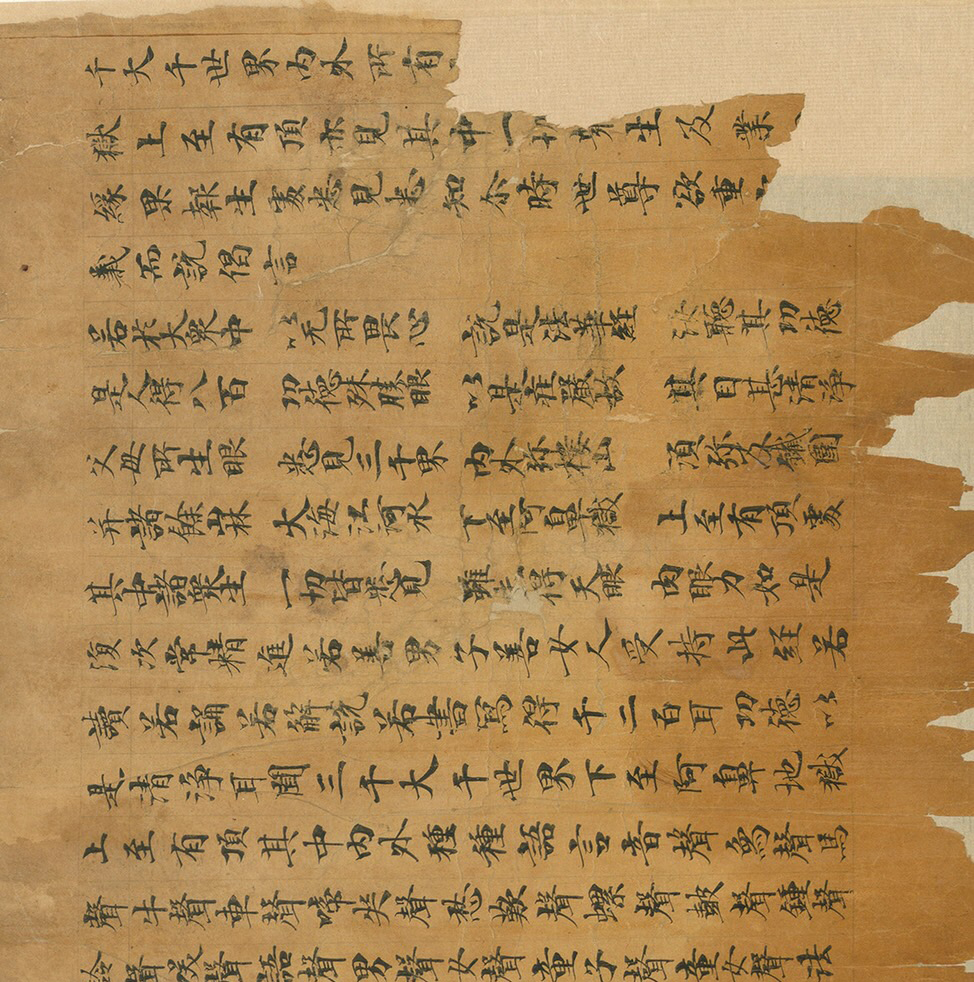 千大千世界内外所有
獄上至有頂亦見其中一切衆生及業
緣果報生處悉見悉知尒時世尊欲重
義而說偈言
若於大衆中 以无所畏心 說是法華經 汝聽其功德
是人得八百 功德殊勝眼 以是莊嚴故 其目甚清淨
父母所生眼 悉見三千界 内外弥樓山 須弥及鐵圍
并諸餘山林 大海江河水 下至阿鼻獄 上至有頂處
其中諸衆生 一切皆悉見 雖未得天眼 肉眼力如是
復次常精進若善男子善女人受持此經若
讀若誦若解說若書寫得千二百耳功德以
是清淨耳聞三千大千世界下至阿鼻地獄
上至有頂其中内外種種語言音聲象聲馬
聲牛聲車聲啼哭聲愁歎聲螺聲鼓聲鍾聲
鈴聲笑聲語聲男聲女聲童子聲童女聲法